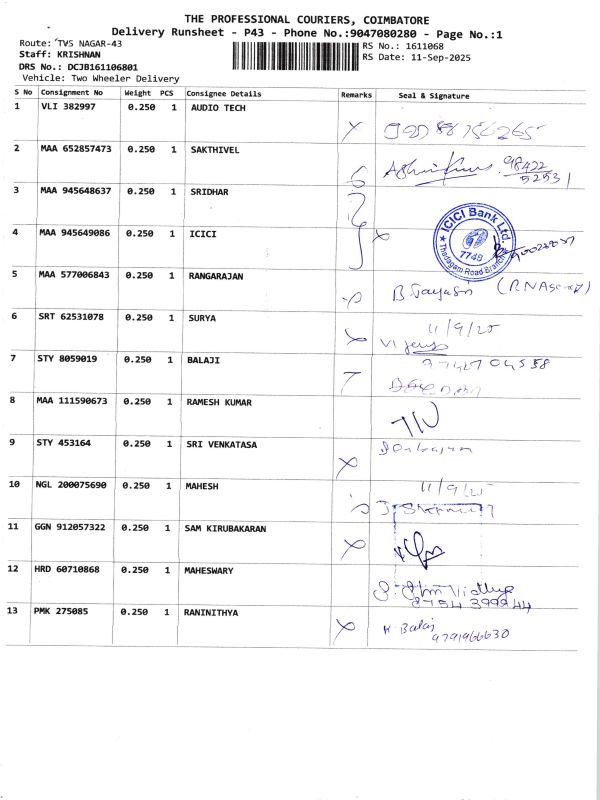 THE PROFESSIONAL COURIERS, COIMBATORE
Delivery Runsheet - P43 - Phone No.:9047080280 - Page No.:1
Route: TVS NAGAR-43
RS No.: 1611068
Staff: KRISHNAN
RS Date: 11-Sep-2025
DRS No.: DCJB161106801
Vehicle: Two Wheeler Delivery
S No Consignment No Weight PCS Consignee Details Remarks Seal & Signature
1 VLI 382997 0.250 1 AUDIO TECH
2 MAA 652857473 0.250 1 SAKTHIVEL
98422
52531
3 MAA 945648637 0.250 1 SRIDHAR
4 MAA 945649086 0.250 1 ICICI
ICICI Bank Ltd.
7748
Thadagam Road Branch
5 MAA 577006843 0.250 1 RANGARAJAN
B Jayasri
6 SRT 62531078 0.250 1 SURYA
11/9/25
7 STY 8059019 0.250 1 BALAJI
8 MAA 111590673 0.250 1 RAMESH KUMAR
9 STY 453164 0.250 1 SRI VENKATASA
10 NGL 200075690 0.250 1 MAHESH
11/9/25
11 GGN 912057322 0.250 1 SAM KIRUBAKARAN
12 HRD 60710868 0.250 1 MAHESWARY
8754 399944
13 PMK 275085 0.250 1 RANINITHYA
K Balaj
9791966630